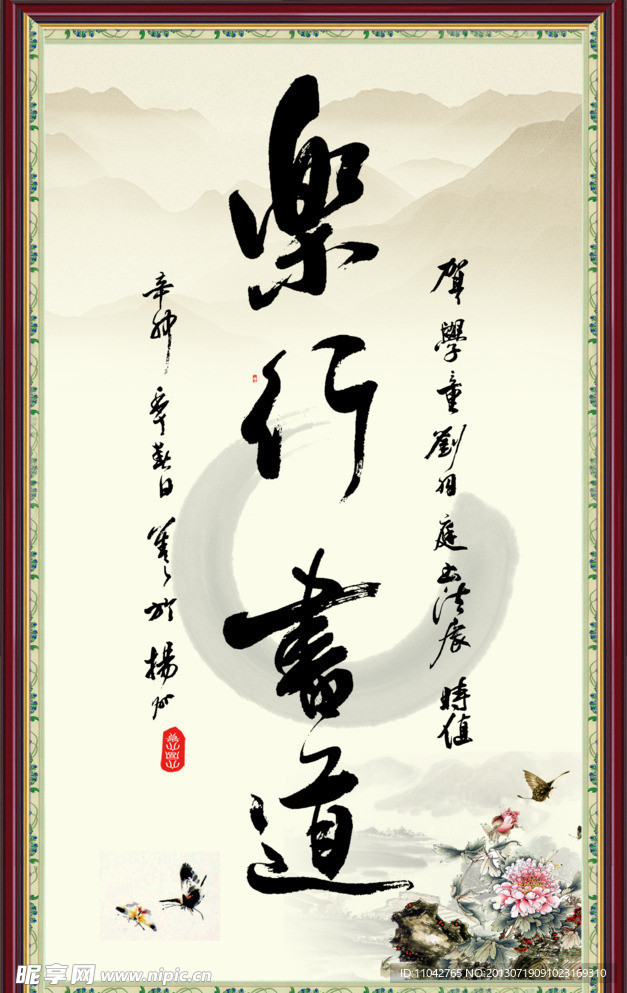 賀學童劉庭書法展時值
樂行書道
辛卯季春日於揚州
昵享网 www.nipic.cn
ID:11042765 NO:20130719091023169310